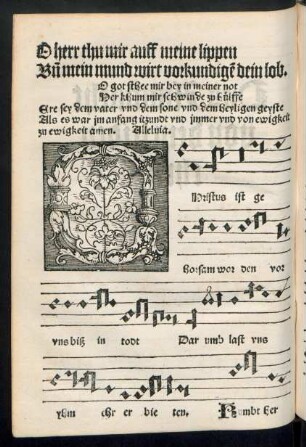 O herr thu mir auff meine lippen
Vñ mein mund wirt vorkundigẽ dein lob.
O got sthee mir bey in meiner not
Her khum mir schwinde zu hülffe
Ere sey dem vater vnd dem sone vnd dem heyligen geyste
Als es war jm anfang itzunde vnd jmmer vnd von ewigkeit
zu ewigkeit amen. Alleluia.
C
Hristus ist ge
horsam wor den vor
vns biß in todt Dar umb last vns
yhm ehr er bie ten. Kumbt her